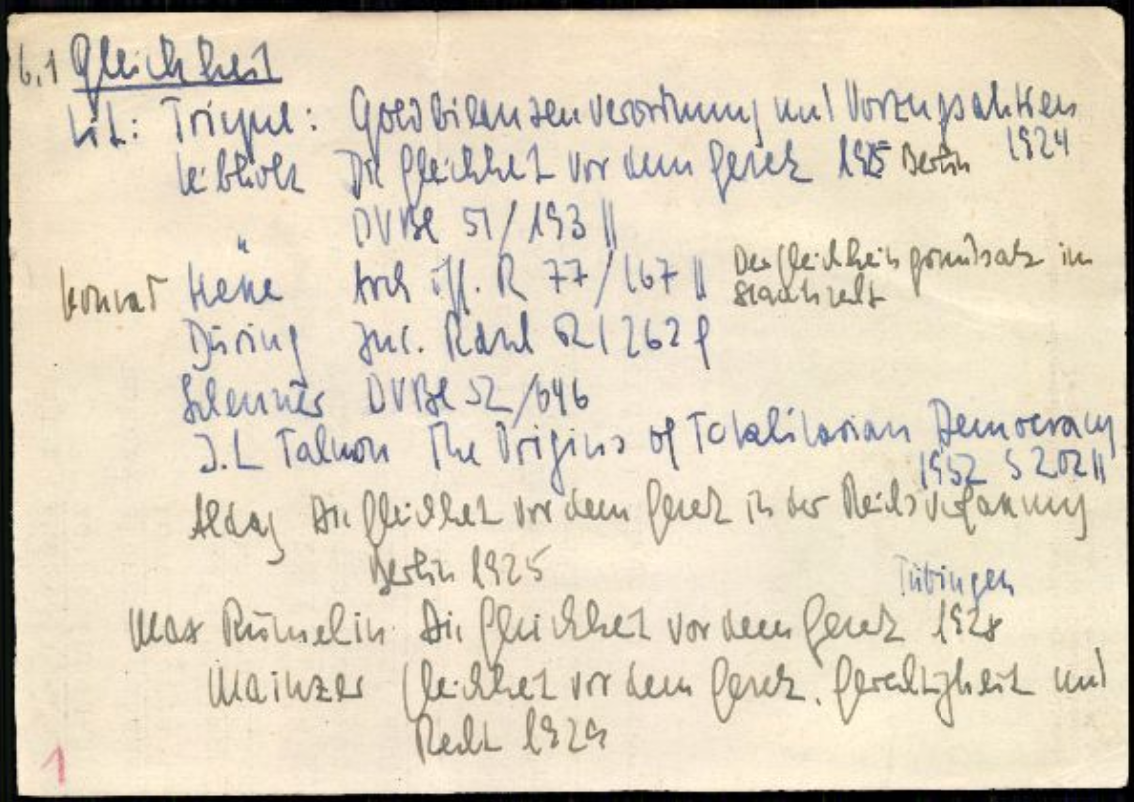 6,1 Gleichheit
Lit.: Triepel: Goldbilanzenverordnung und Vorzugsaktien
1924
Leibholz Die Gleichheit vor dem Gesetz 1925 Berlin
" DVBl 51/193 ||
Konrad Hesse Arch öff. R 77/167 || Der Gleichheitsgrundsatz im
Staatsrecht
Düring Jur. Rdsch 52/262 f
DVBl 52/646
J. L Talmon The Origins of Totalitarian Democracy
1952 S 202 ||
Aldag Die Gleichheit vor dem Gesetz in der Reichsverfassung
Berlin 1925
Tübingen
Max Rümelin Die Gleichheit vor dem Gesetz 1928
Mainzer Gleichheit vor dem Gesetz. Gerechtigkeit und
Recht 1929
1